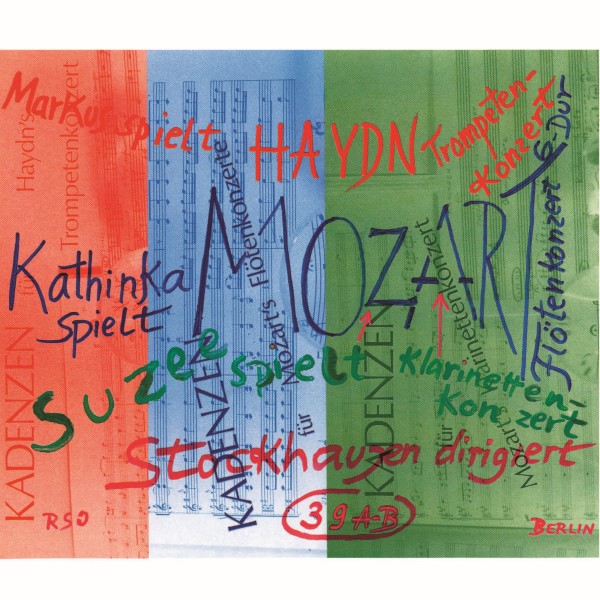 Markus spielt HAYDN Trompeten-
Konzert
Kathinka
spielt
MOZART
Flötenkonzert G-Dur
Suzee spielt Klarinetten-
Konzert
Stockhausen dirigiert
RSO
39 A-B
BERLIN
KADENZEN
für
Haydn's
Trompetenkonzert
KADENZEN
für
Mozart's Flötenkonzerte
KADENZEN
für
Mozart's Klarinettenkonzert